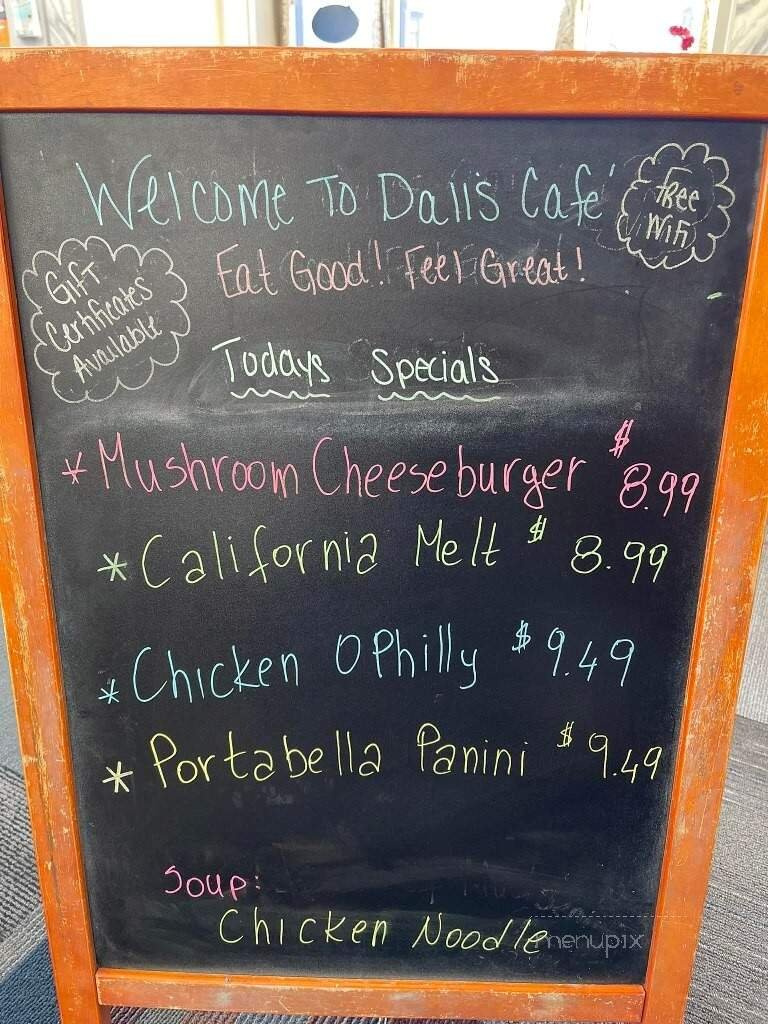 Welcome To Dalis Cafe'
Free
WiFi
Eat Good! Feel Great!
Gift
Certificates
Available
Todays Specials
* Mushroom Cheeseburger $ 8.99
* California Melt $ 8.99
* Chicken O Philly $ 9.49
* Portabella Panini $ 9.49
Soup:
Chicken Noodle
menupix